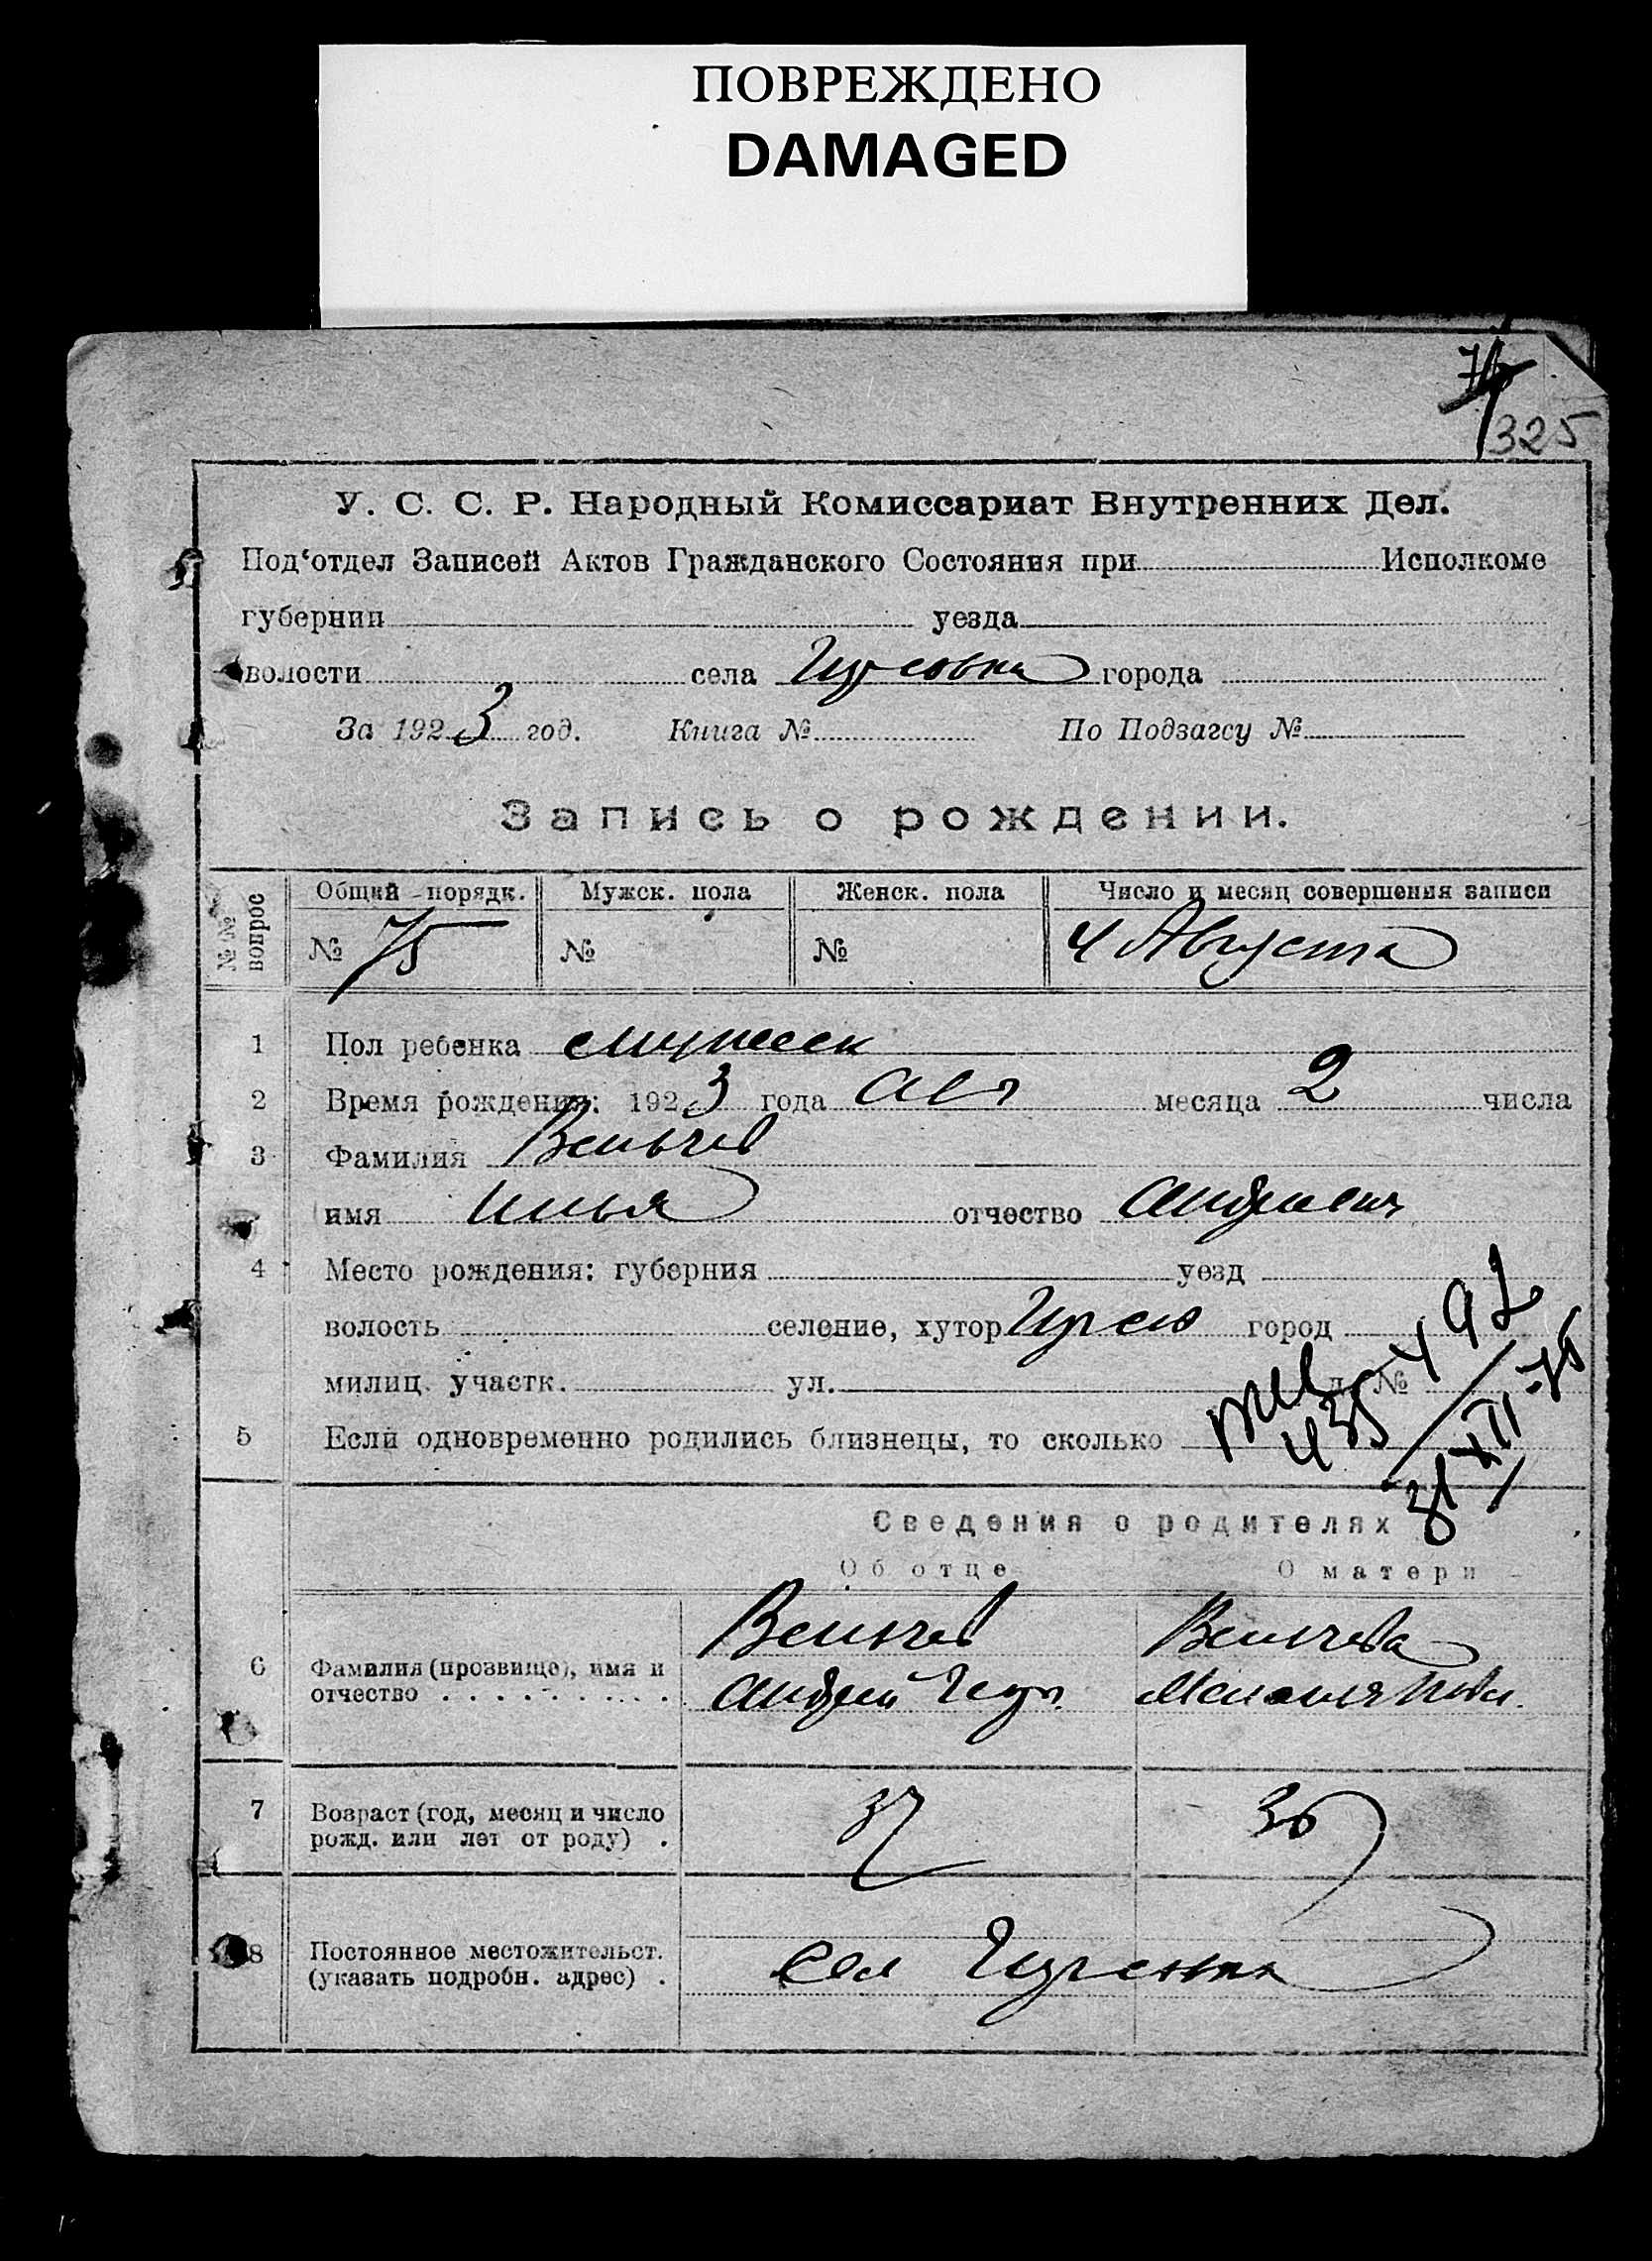 ПОВРЕЖДЕНО
DAMAGED
325
У. С. С. Р. Народный Комиссариат Внутренних Дел.
Под‘отдел Записей Актов Гражданского Состояния при Исполкоме
губернии уезда
волости села города
За 1923 год. Книга № По Подзагсу №
Запись о рождении.
№№ вопрос Общий порядк. Мужск. пола Женск. пола Число и месяц совершения записи
№ 75 № № 4 Августа
1 Пол ребенка мужеск
2 Время рождения: 1923 года месяца 2 числа
3 Фамилия Вельчев
имя Илья отчество
4 Место рождения: губерния уезд
волость селение, хутор город
милиц. участк. ул. д. №
5 Если одновременно родились близнецы, то сколько
31 XII
Сведения о родителях
Об отце О матери
Вельчев Вельчева
6 Фамилия (прозвище), имя и
отчество . . . . . . . . . . Андрей
7 Возраст (год, месяц и число
рожд. или лет от роду) . 37
8 Постоянное местожительст.
(указать подробн. адрес) .